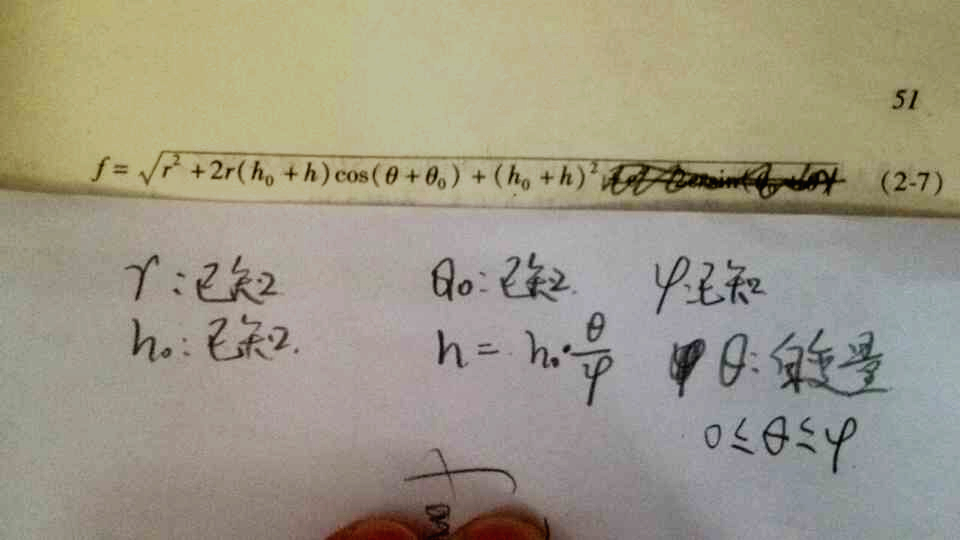 51
f = √(r² + 2r(h₀ + h)cos(θ + θ₀) + (h₀ + h)²) (2-7)
r:已知 θ₀:已知. φ:已知
h₀:已知. h = h₀·θ/φ θ:自变量
0≤θ≤φ